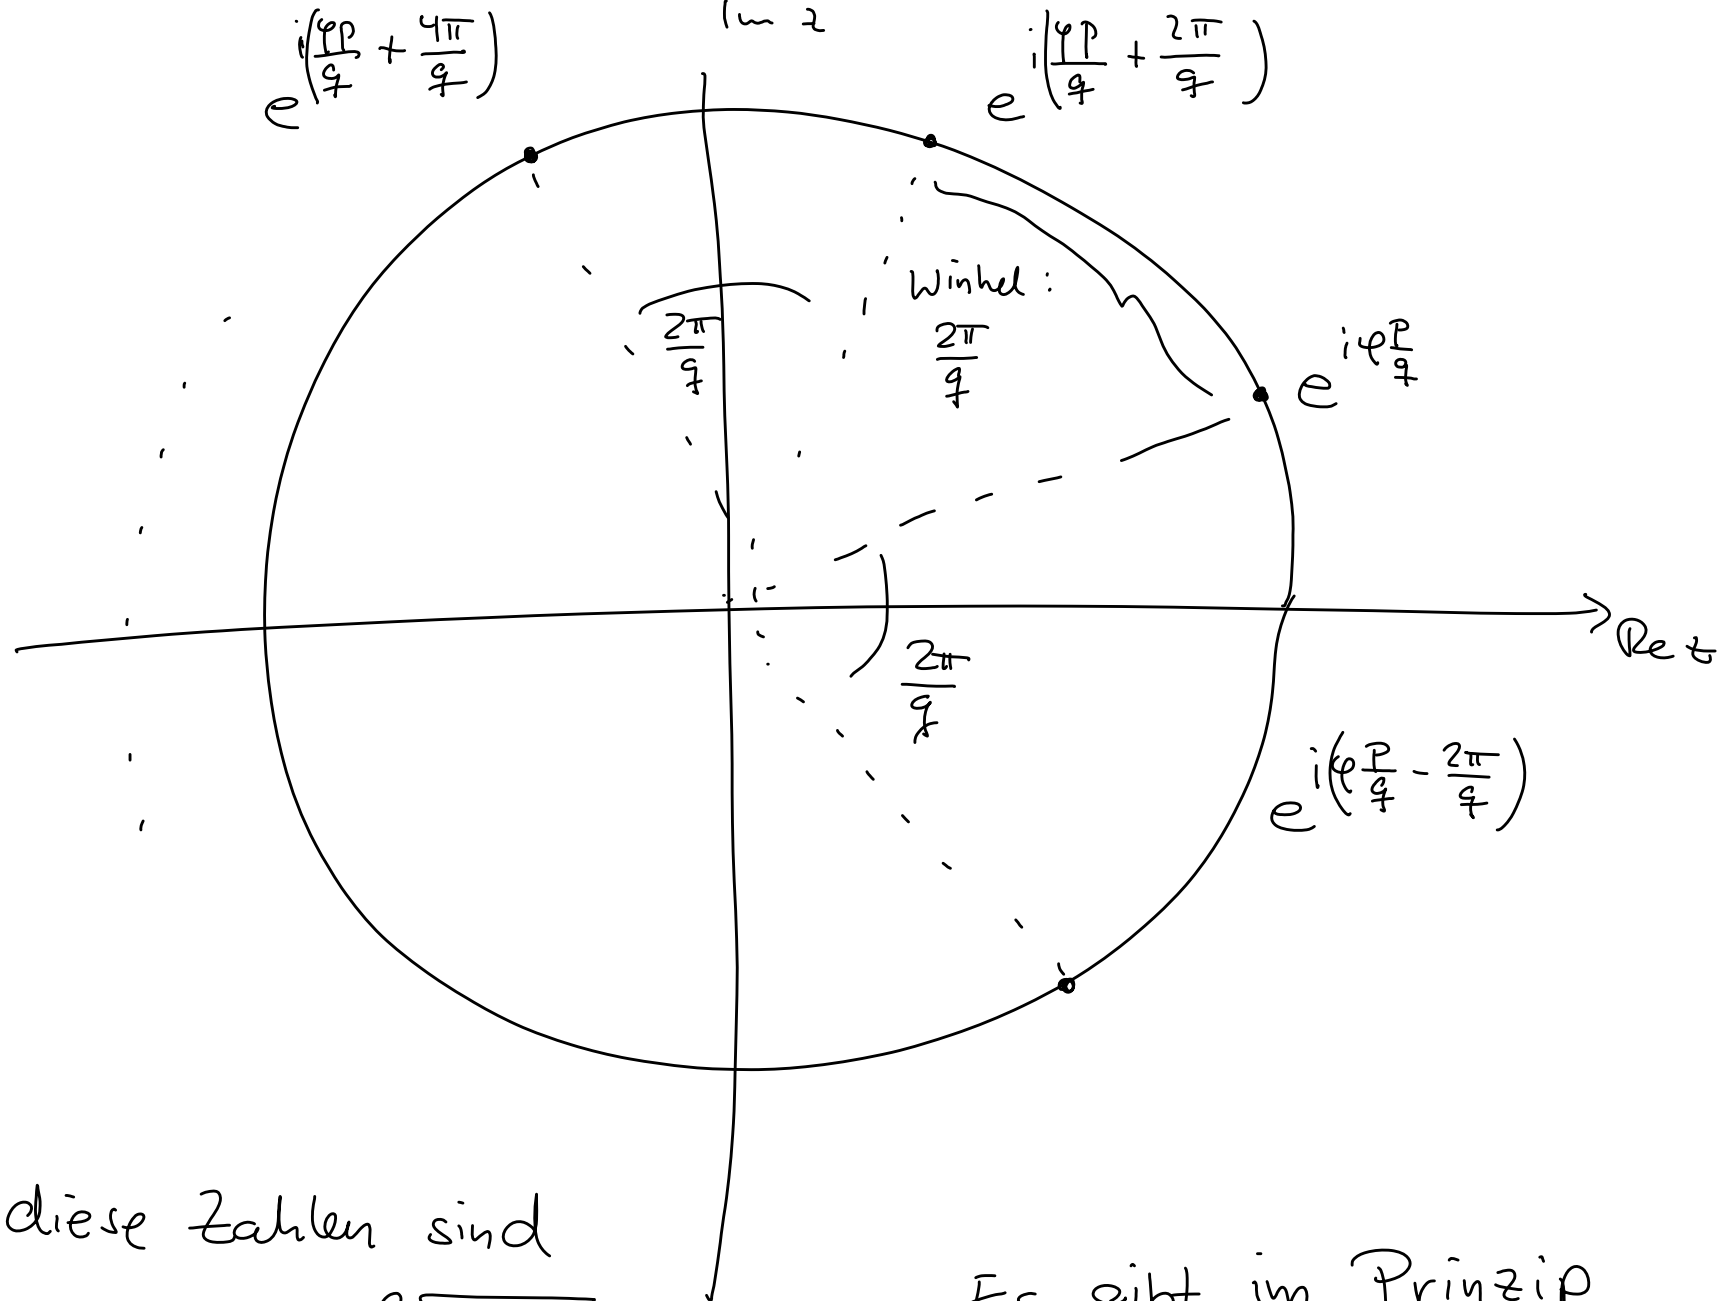 Im z
e^{i(φp/q + 4π/q)}
e^{i(φp/q + 2π/q)}
Winkel :
2π/q
2π/q
e^{iφ p/q}
2π/q
Re z
e^{i(φ p/q - 2π/q)}
diese Zahlen sind
Es gibt im Prinzip